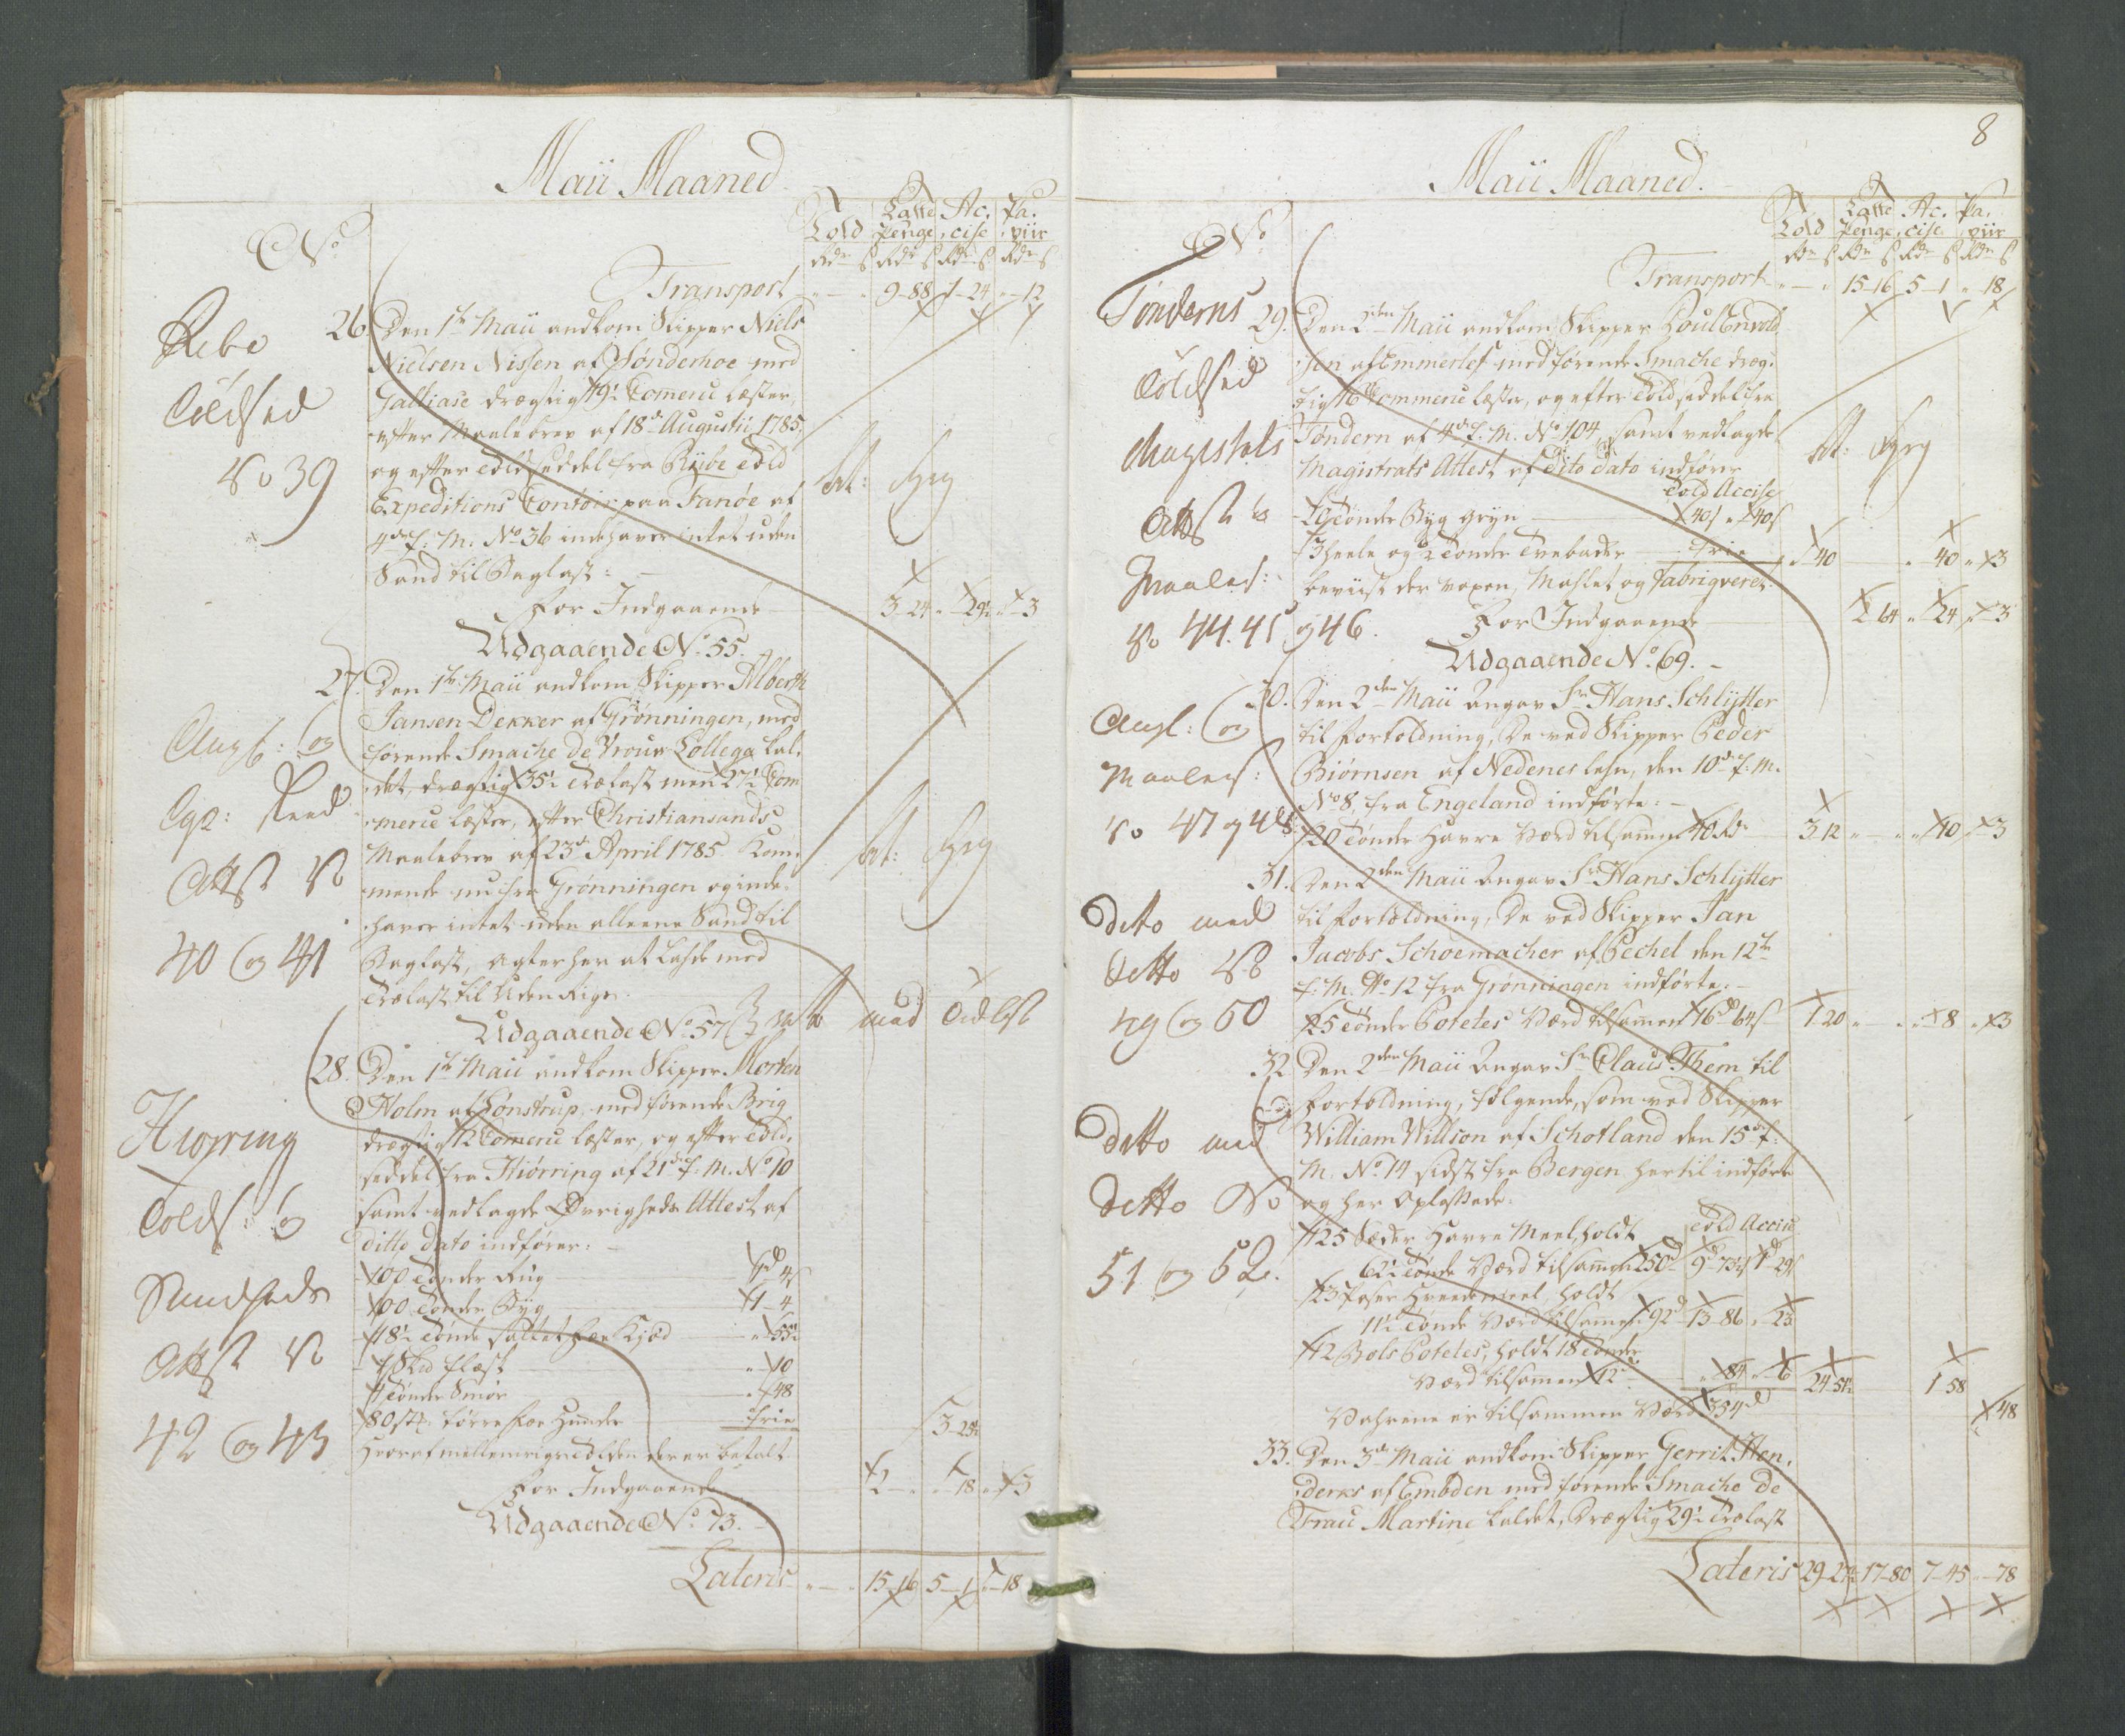 Maii Maaned
No
Told Laste Penge Ac, cise Pa, piir
Rdr s Rdr s Rdr s Rdr s
Transport 9-88 1-24 12
Ribe
Toldsed
No 39
26. Den 1te Maii andkom Skipper Niels
Nielsen Nissen af Sønderhoe med
Galliase drægtig 19½ Comerce læster,
efter Maalebrev af 18de Augustii 1785.
og efter Toldseddel fra Riibe Told
Expeditions Contoir paa Fanøe af
4de f. M. No 36 indehaver intet uden
Sand til Baglast: -
For Indgaaende 3-24 29½ 3
Udgaaende No 55.
Angf: og
Exp: Reed
Attst No
40 og 41
27. Den 1te Maii andkom Skipper Alberth
Jansen Dekker af Grønningen, med
førende Smache de Vrouw Lollega kal,
det, drægtig 35½ Trælast men 27½ Com
merce læster, efter Christiansands
Maalebrev af 23de April 1785 Kom,
mende nu fra Grønningen og inde,
haver intet uden alleene Sand til
Baglast, agter her at lade med
Trælast til Uden Rigs.
Udgaaende No 57
Hiørring
Tolds: og
Sundheds
Attst No
42 og 43
28. Den 1te Maii andkom Skipper Morten
Holm af Lønstrup, med førende Brig
drægtig 12 Comerce læster, og efter Told,
seddel fra Hiørring af 21de f. M. No 10
samt vedlagde Øvrigheds Attest af
ditto dato indfører: -
100 Tønder Rug 4
100 Tønder Byg 1-4
18½ Tønde saltet Fæe Kiød
Flæsk 10
Tønder Smør 48
80 stk. tørre Fæe Huuder frie
3-25½
Hvoraf mellemrigs Tolden der er betalt
For Indgaaende 2 18 3
Udgaaende No 73.
Lateris 15-16 5-1 18
8
Maii Maaned.
No
Told Laste Penge Ac, cise Pa, piir
Rdr s Rdr s Rdr s Rdr s
Transport 15-16 5-1 18
Tønderns
Toldsed
Magistrats
Attst og
Maales:
No 44. 45 og 46.
29. Den 2den Maii andkom Skipper Poul Envold
sen af Emmerlef med førende Smache dræg,
tig 16 Commerce læster, og efter Toldseddel fra
Tøndern af 4de f. M. No 104, samt vedlagde
Magistrats Attest af dito dato indfører
Told Accise
10 Tønder Byg gryn 40s 40s
3 heele og 2 Tønder Tvebakker frie 40 40 3
beviist der voxen, Mahlet og fabriqveret.
For Indgaaende 2 64 24 3
Udgaaende No 69. -
Angf: og
Maales:
No 47 og 48
30. Den 2den Maii Angav Sr Hans Schlytter
til fortoldning, De ved Skipper Peder
Biørnsen af Nedenes lehn, den 10de f. M.
No 8, fra Engeland indførte: -
20 Tønder Havre Værd tilsammen 40 Rdr 3 12 10 3
Dito med
Ditto No
49 og 50
31. Den 2den Maii Angav Sr Hans Schlytter
til fortoldning, De ved Skipper Jan
Jacobs Schoemacher af Pechel den 12te
f. M. No 12 fra Grønningen indførte: -
25 Tønder Potetes Værd tilsammen 16d 64s 1 20 8 3
Ditto med
Ditto No
51 og 52.
32 Den 2den Maii Angav Sr Claus Them til
fortoldning, følgende, som ved Skipper
William Willson af Schotland den 15de f.
M. No 14 sidst fra Bergen hertil indførte
og her Oplossede:
Told Accise
125 Sæder Havre Meel, holdt
62½ Tønde Værd tilsammen 250d 9d 73s 1d 29s
23 Poser Hvedemeel, holdt
11½ Tønde Værd tilsammen 92d 13-86 23
12 Bols Potetes, holdt 18 Tønder
Værd tilsammen 12 84 6 24 51½ 1 58
Vahrene er tilsammen Værd 354d 48
33. Den 3de Maii andkom Skipper Gerrit Hen,
derks af Embden med førende Smache De
Frau Martine kaldet, Drægtig 29½ Trælast
Lateris 29-27½ 17-80 7-45 78